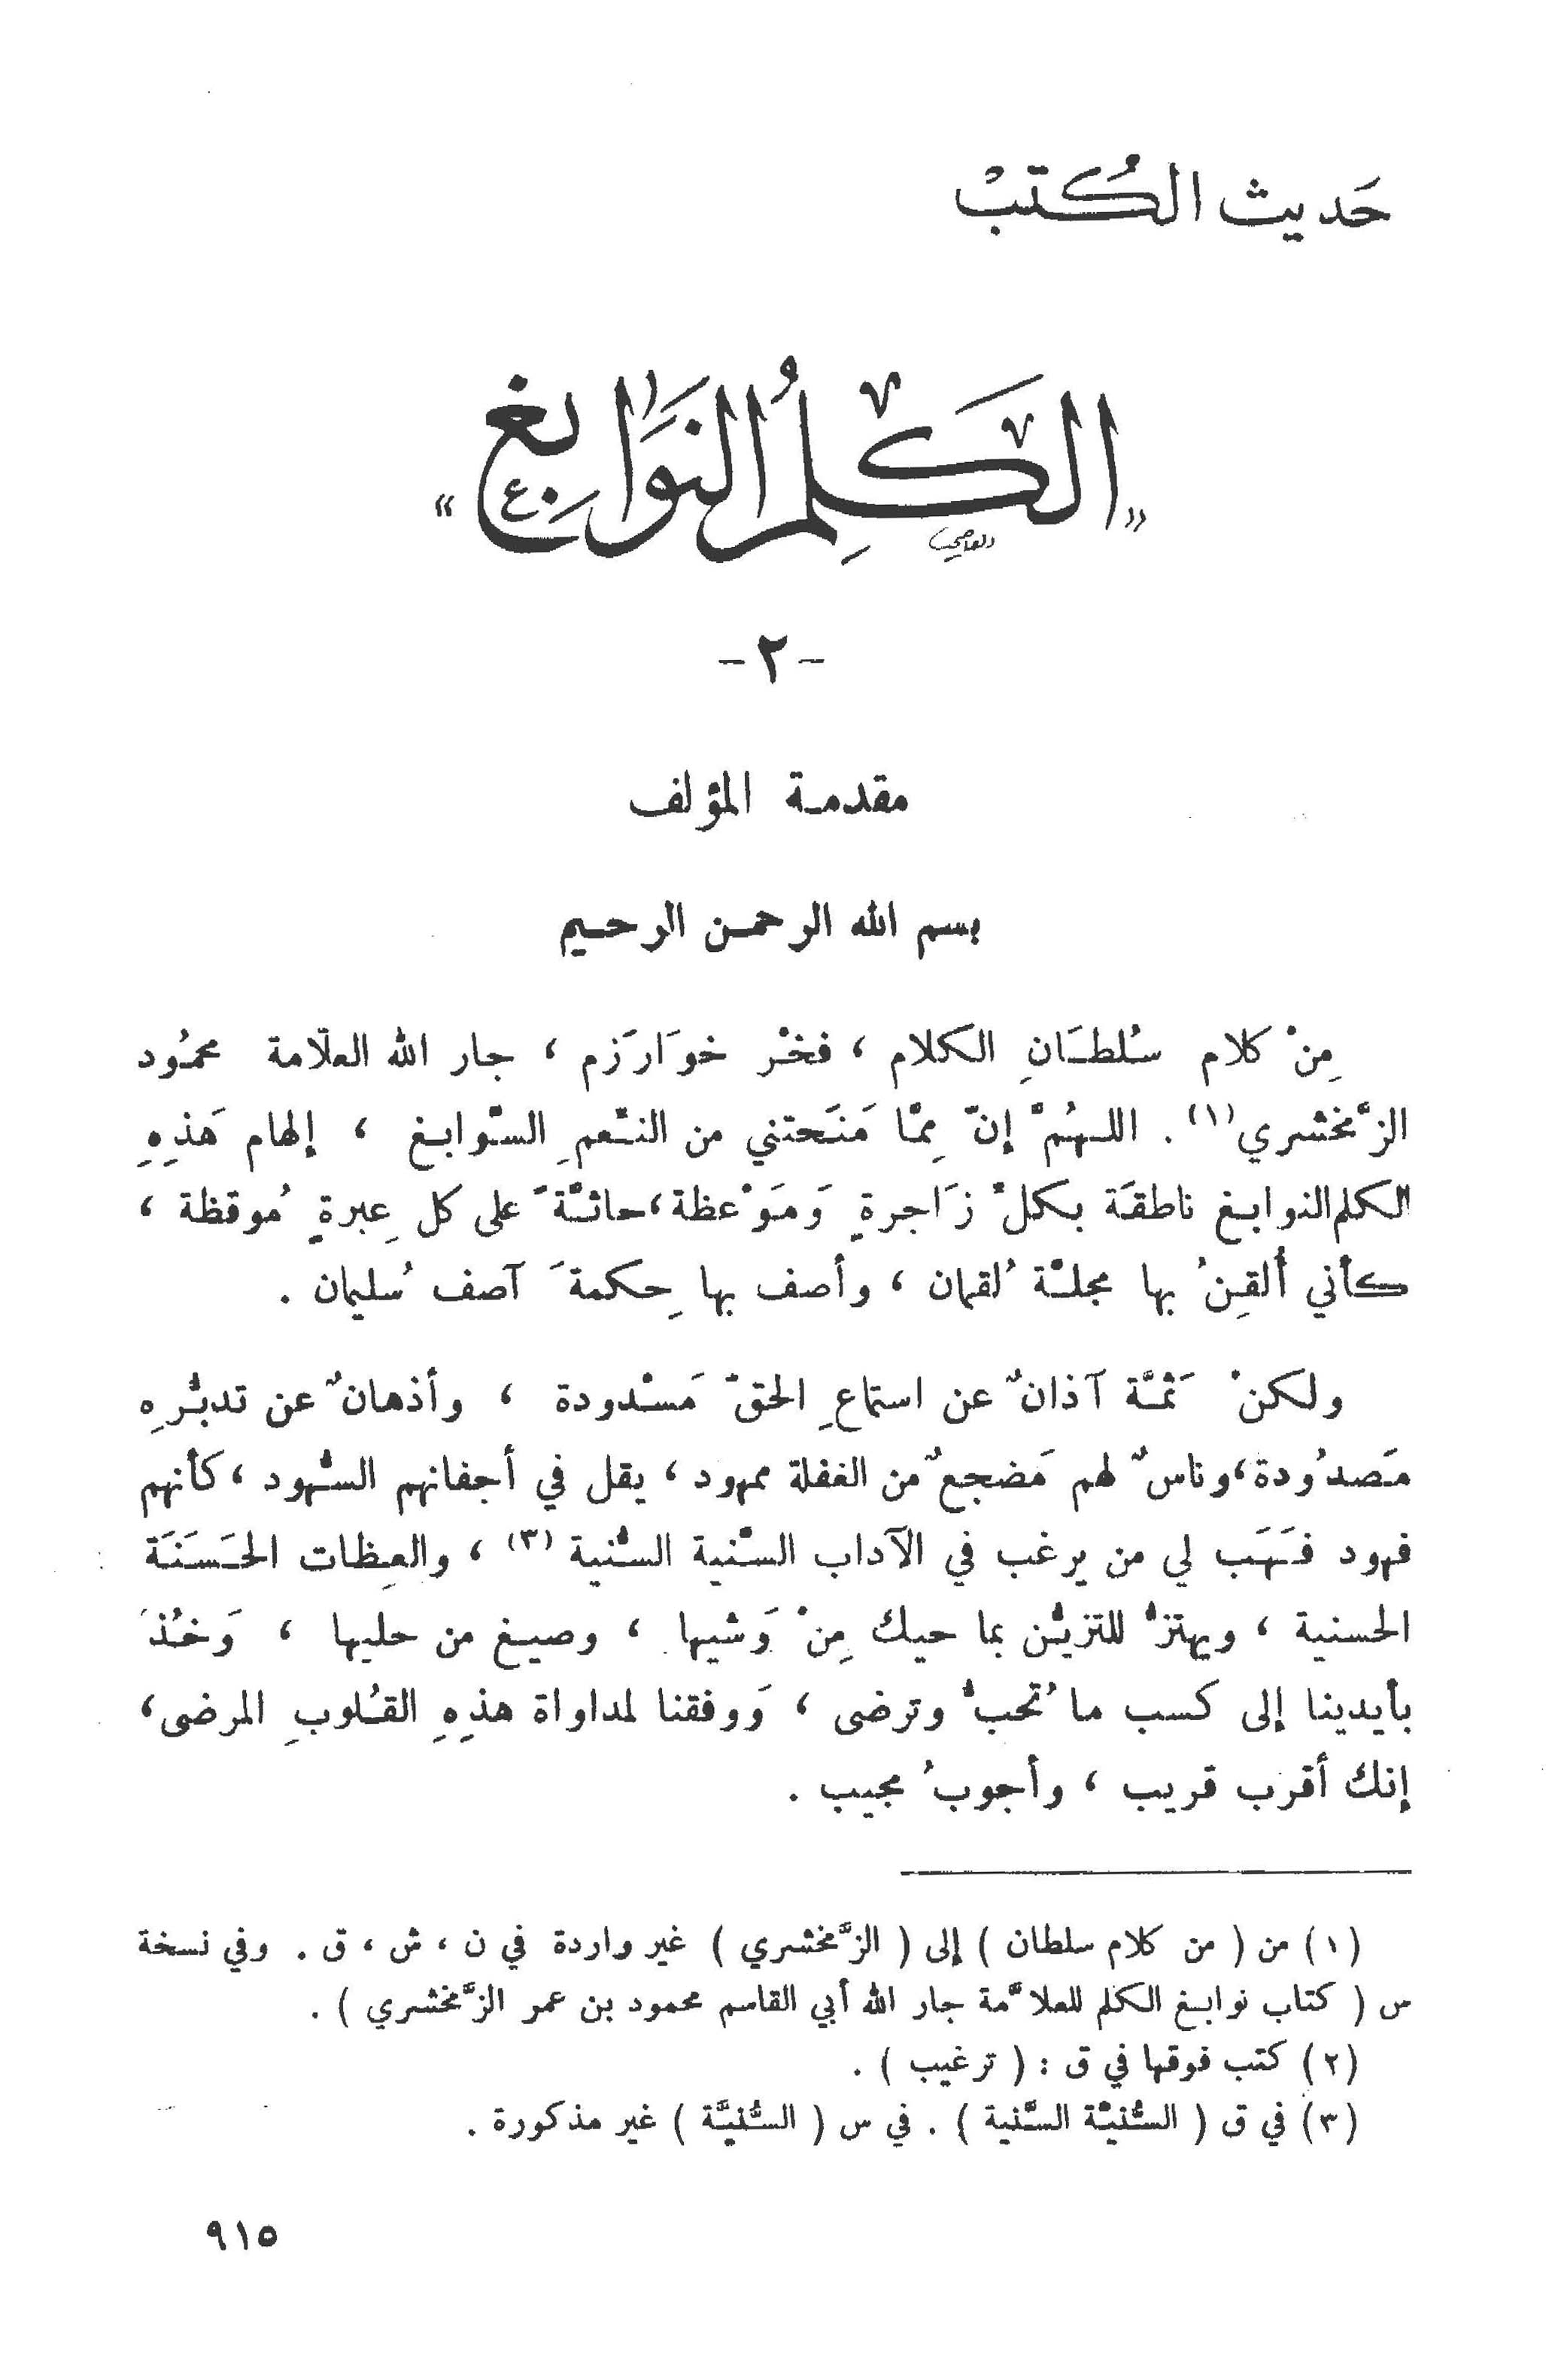 حَديث الكُتبْ
« الكَلِمُ النَوَابِغ »
القاضي
- ٢ -
مقدمة المؤلف
بسم الله الرحمن الرحيم
مِنْ كلام سُلطَانِ الكلام ، فخْر خوَارَزم ، جار الله العلّامة محمُود
الزَّمخشري(١) . اللهُمَّ إنّ مِمَّا مَنَحتني من النِّعمِ السَّوابغ ، إلهام هَذِهِ
الكلم النوابغ ناطقَة بكلِّ زَاجرةٍ وَمَوْعظة ، حاثَّةً على كل عِبرةٍ مُوقظة ،
كأني أُلقِنُ بها مجلَّة لُقمان ، وأصف بها حِكمةَ آصف سُليمان .
ولكنْ ثَمَّة آذانٌ عن استماعِ الحقّ مَسْدودة ، وأذهانٌ عن تدبُّرِه
مَصدُودة ، وناسٌ لهم مَضجعٌ من الغفلة ممهود ، يقل في أجفانهم السُّهود ، كأنهم
فهود فَهَب لي من يرغب في الآداب السَّنية السُّنية (٣) ، والعِظات الحَسَنَة
الحسنية ، ويهتزُّ للتزيُّن بما حيك مِنْ وَشيها ، وصيغ من حليها ، وَخُذْ
بأيدينا إلى كسب ما تُحبُّ وترضى ، وَوفقنا لمداواة هذِهِ القُلوبِ المرضى ،
إنك أقرب قريب ، وأجوبُ مجيب .
(١) من ( من كلام سلطان ) إلى ( الزَّمخشري ) غير واردة في ن ، ش ، ق . وفي نسخة
س ( كتاب نوابغ الكلم للعلاَّمة جار الله أبي القاسم محمود بن عمر الزَّمخشري ) .
(٢) كتب فوقها في ق : ( ترغيب ) .
(٣) في ق ( السُّنيَّة السَّنية ) . في س ( السُّنيَّة ) غير مذكورة .
٩١٥